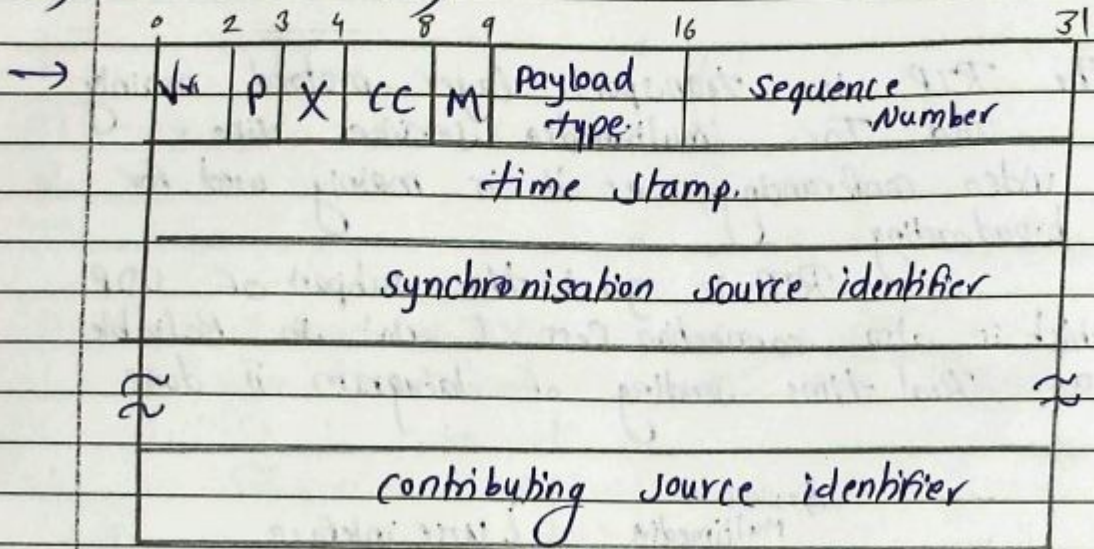 0 2 3 4 8 9 16 31
→ P X CC M Payload type. Sequence Number
time stamp.
synchronisation source identifier
contributing source identifier